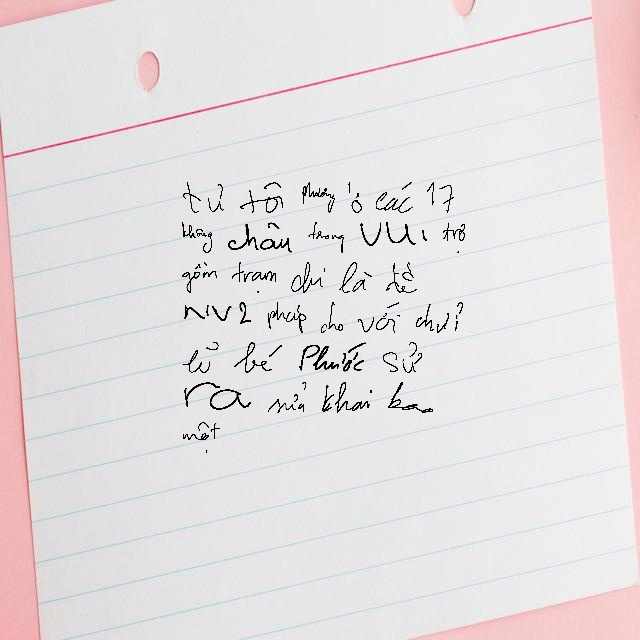 từ tôi phương ở các 17
không châu trong VUI trợ
gồm trạm chi là tề
NV2 pháp cho với chửi
từ bé Phước sử
ra nửa khai bao
một